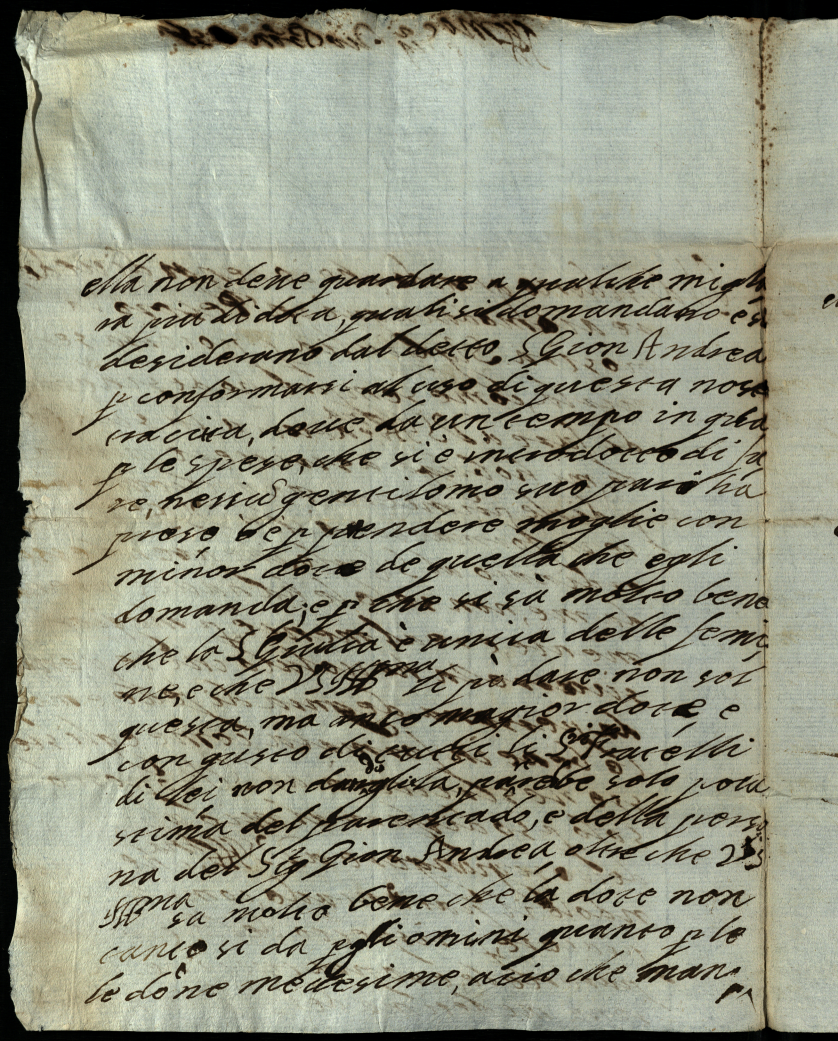 ella non deve guardare a qualche miglia
ra più di dota, quali si domandano e si
desiderano dal detto S. Gion Andrea
p conformarsi al uso di questa nost
ra città, dove da un tempo in qua
p le spese, che si è introdotto di fa
re, nessũ gentilomo suo pari ha
preso ne p prendere moglie con
minor dote de quella che egli
domanda; e p che si sà molto bene
che la S. Giulia è unica delle femi
ne, e che VS Illma li pò dare non sol
questa, ma anco magior dote, e
con gusto di tutti li Sri fratelli
di lei non dandoglila, parebe solo poca
stima del parentado, e della perso
na del Sig Gion Andrea, oltre che VS
Illma sa molto bene che la dote non
tanto si da p gli omini quanto p le
le dõne medesime, acio che man